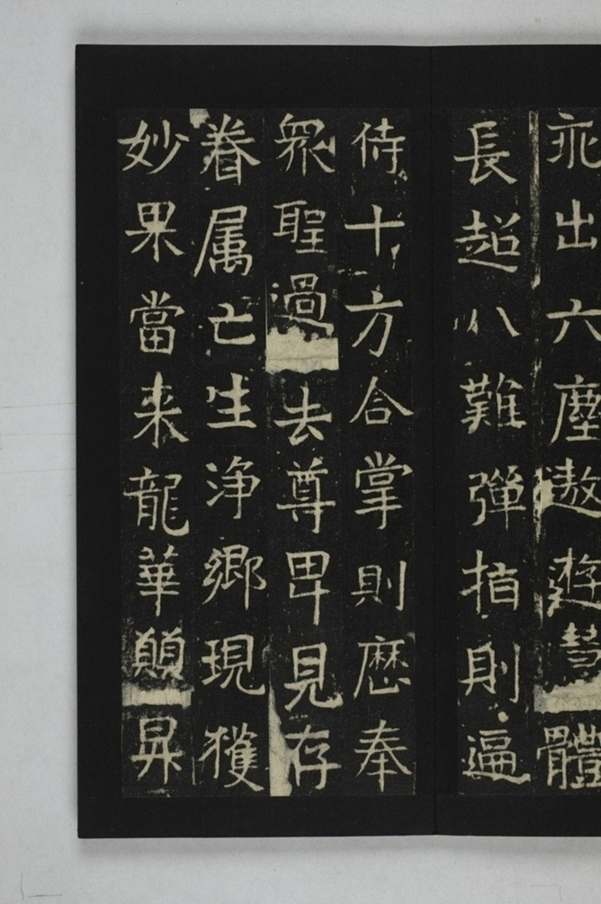 出六塵遨遊慧體
長超八難彈指則遍
侍十方合掌則歷奉
眾聖過去尊卑見存
眷属亡生浄鄉現獲
妙果當来龍華願昇